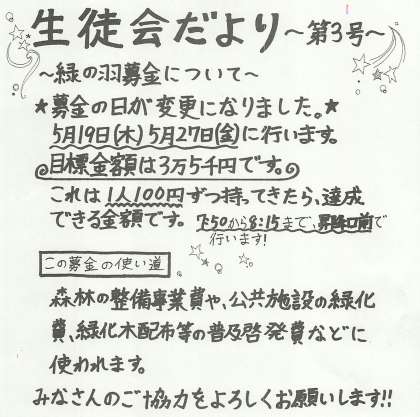 生徒会だより～第3号～
～緑の羽募金について～
★募金の日が変更になりました。★
5月19日(木)5月27日(金)に行います。
目標金額は3万5千円です。
これは1人100円ずつ持ってきたら、達成
できる金額です。7:50から8:15まで、昇降口前で
行います!
この募金の使い道
森林の整備事業費や、公共施設の緑化
費、緑化木配布等の普及啓発費などに
使われます。
みなさんのご協力をよろしくお願いします!!